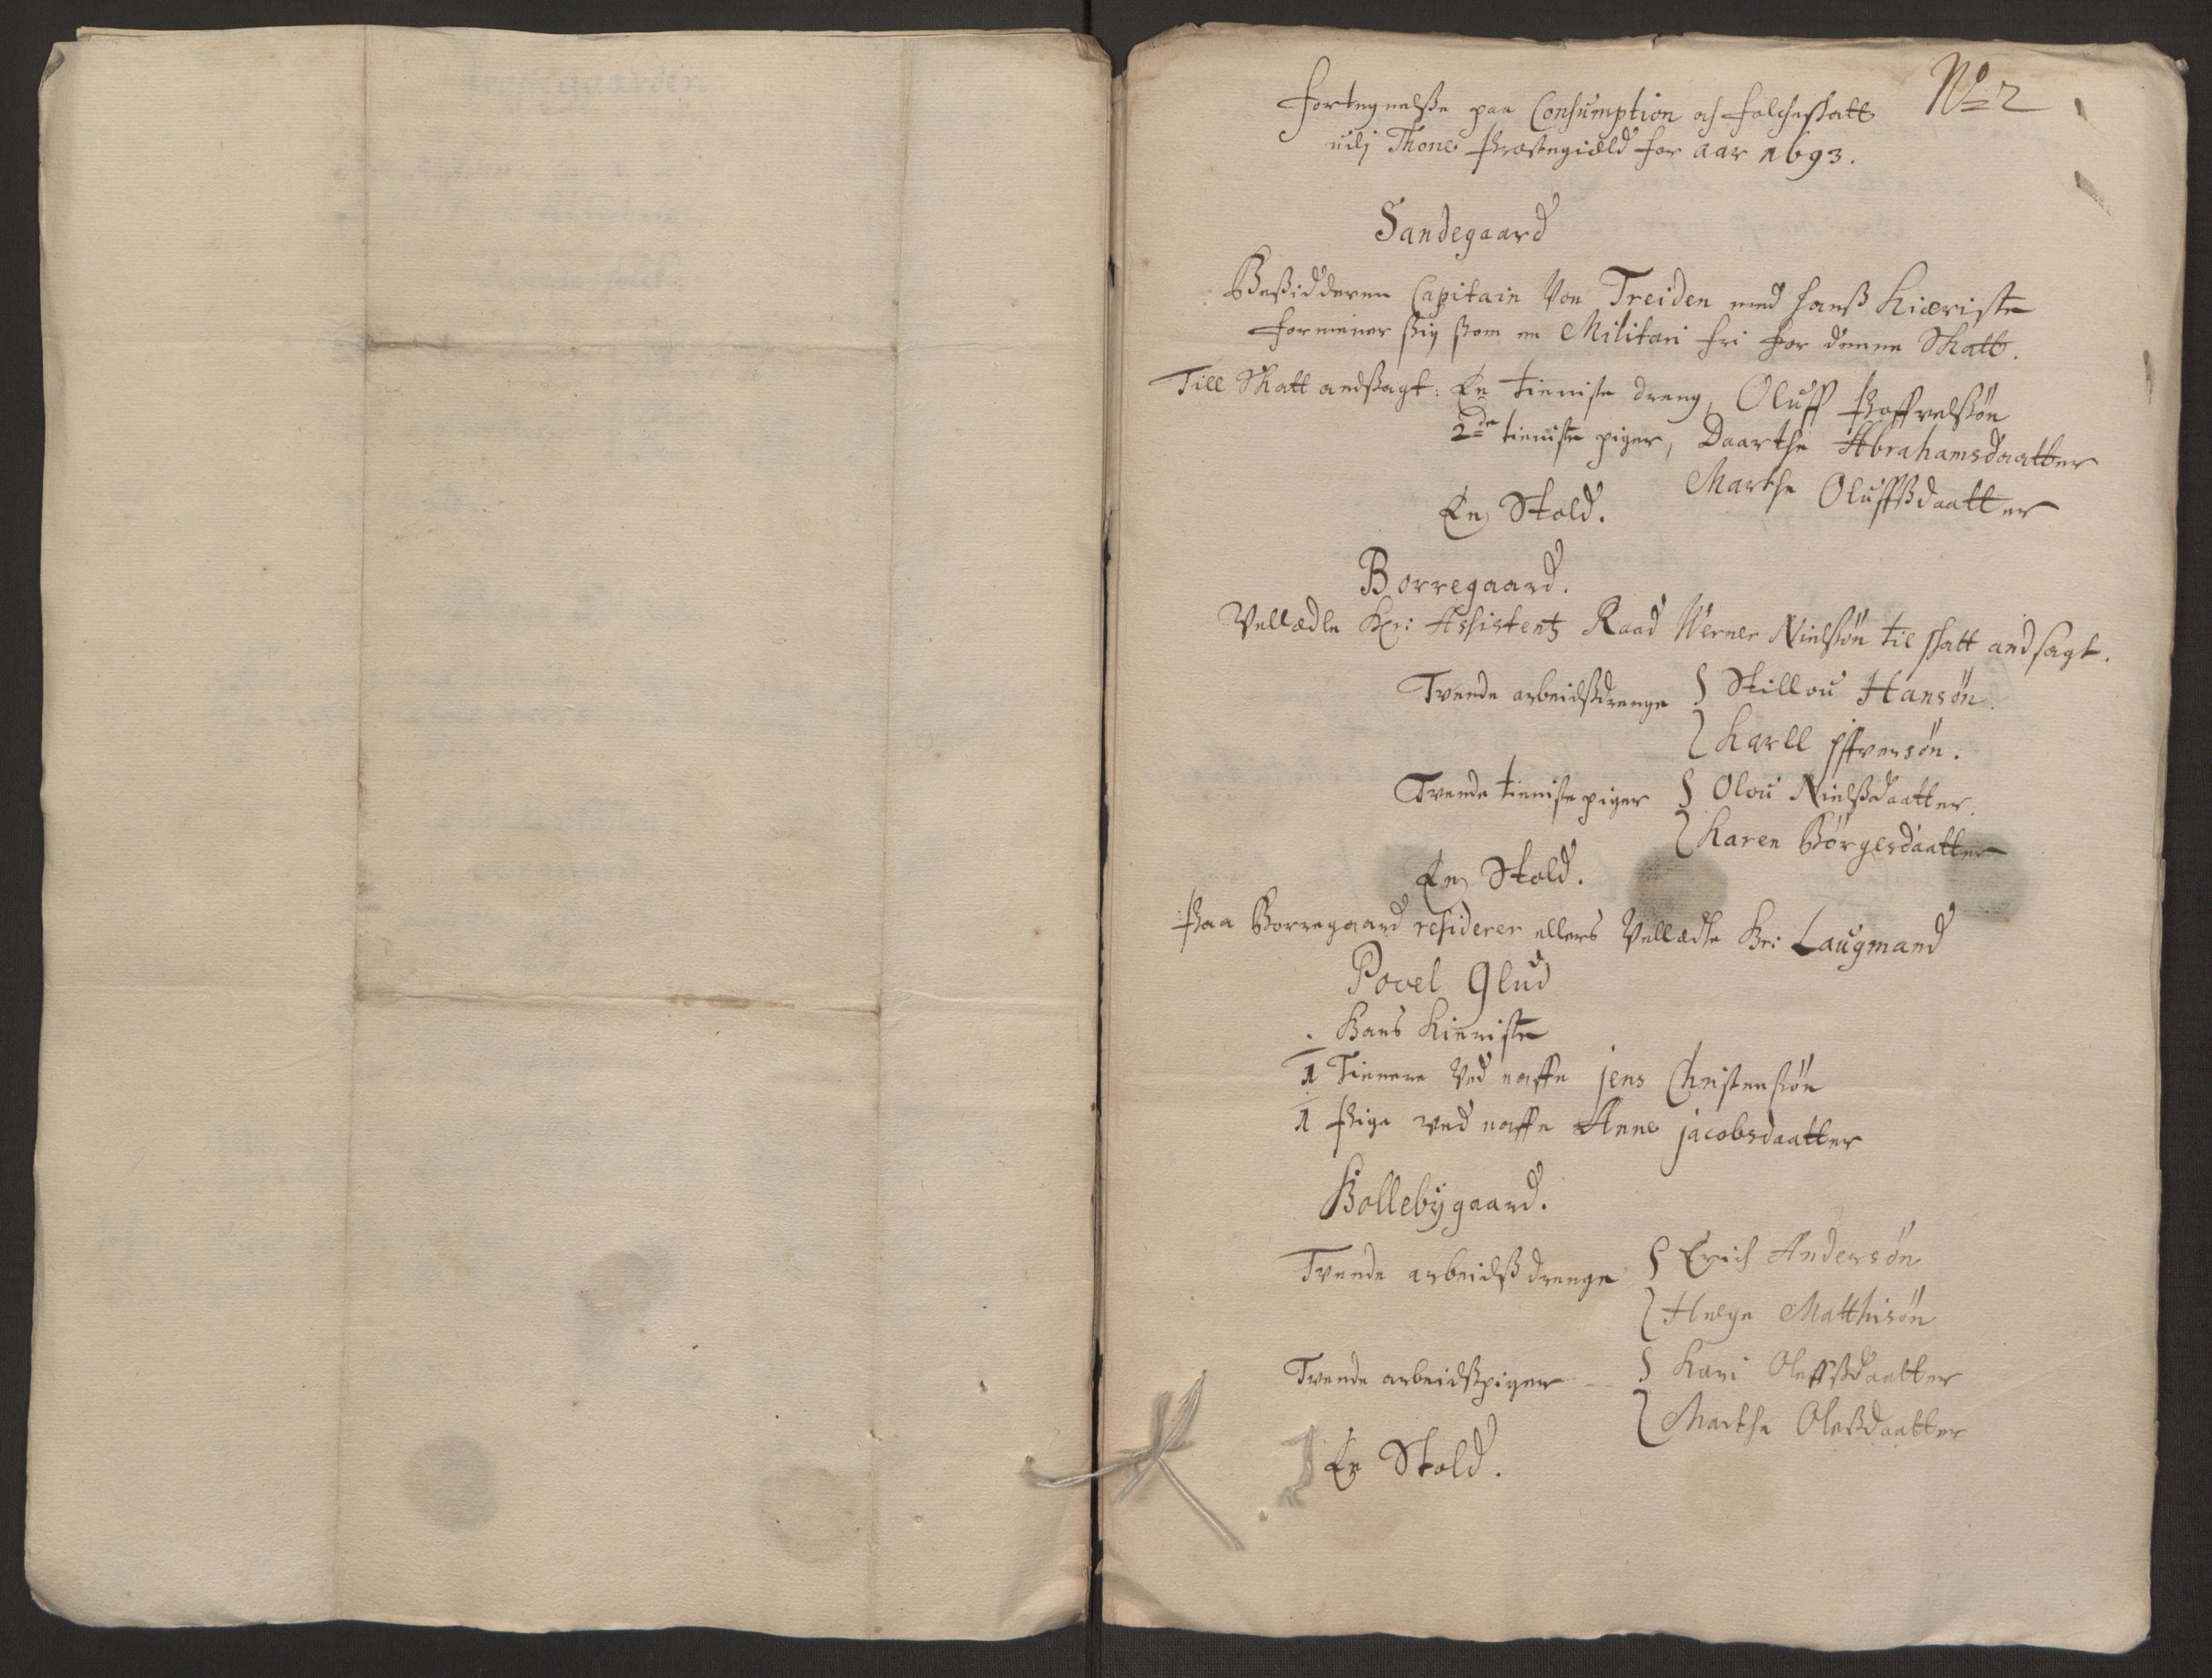 No 2
Fortegnelsse paa Consumption och Folcheskatt
udj Thone Præstegield for aar 1693.
Sandegaard
Bessidderen Capitain Von Treiden med hanss Kiæriste
formener ssig ssom en Militari fri for denne Skatt.
Till Skatt andssagt: En tieniste dreng, Oluff
2de tieniste piger, Daarthe Abrahamsdaatter
Marthe Oluffssdaatter
En Stold.
Borregaard.
Vellædle Hr: Assistentz Raad Werner Nielssøn til skatt andsagt.
Tvende arbeidssdrenge { Stillou Hansøn.
{ Karll Iffversøn.
Tvende tieniste piger { Olou Nielssdaatter.
{ Karen Børgesdaatter
En Stold.
Paa Borregaard residerer ellers Vellædle Hr: Laugmand
Povel Glud
Hans Kieriste
1 Tienere Ved naffn jens Christenssøn
1 Pige ved naffn Anne jacobsdaatter
Hollebygaard.
Tvende arbeidss drenge { Erich Andersøn
{ Helge Matthisøn
Tvende arbeidsspiger -- { Kari Oleffssdaatter
{ Marthe Olessdaatter
En Stold.